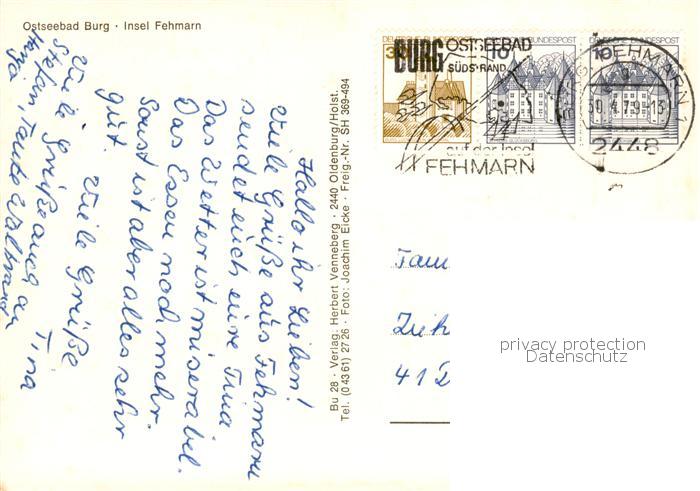 Ostseebad Burg · Insel Fehmarn
Hallo ihr Lieben!
Viele Grüße aus Fehmarn
sendet euch eure Tina
Das Wetter ist miserabel.
Das Essen noch mehr.
Sonst ist aber alles sehr
gut.
Viele Grüße
Tina
Viele Grüße auch an
Stefan, Tante Waltraud
Bu 28 · Verlag: Herbert Venneberg · 2440 Oldenburg/Holst.
Tel. (04361) 2726 · Foto: Joachim Eicke · Freig.-Nr. SH 369-494
DEUTSCHE BUNDESPOST
10
DEUTSCHE BUNDESPOST
10
BURG OSTSEEBAD
SÜDSTRAND
auf der Insel
FEHMARN
FEHMARN 1
2448
Fam
Zuk
41 D
privacy protection
Datenschutz